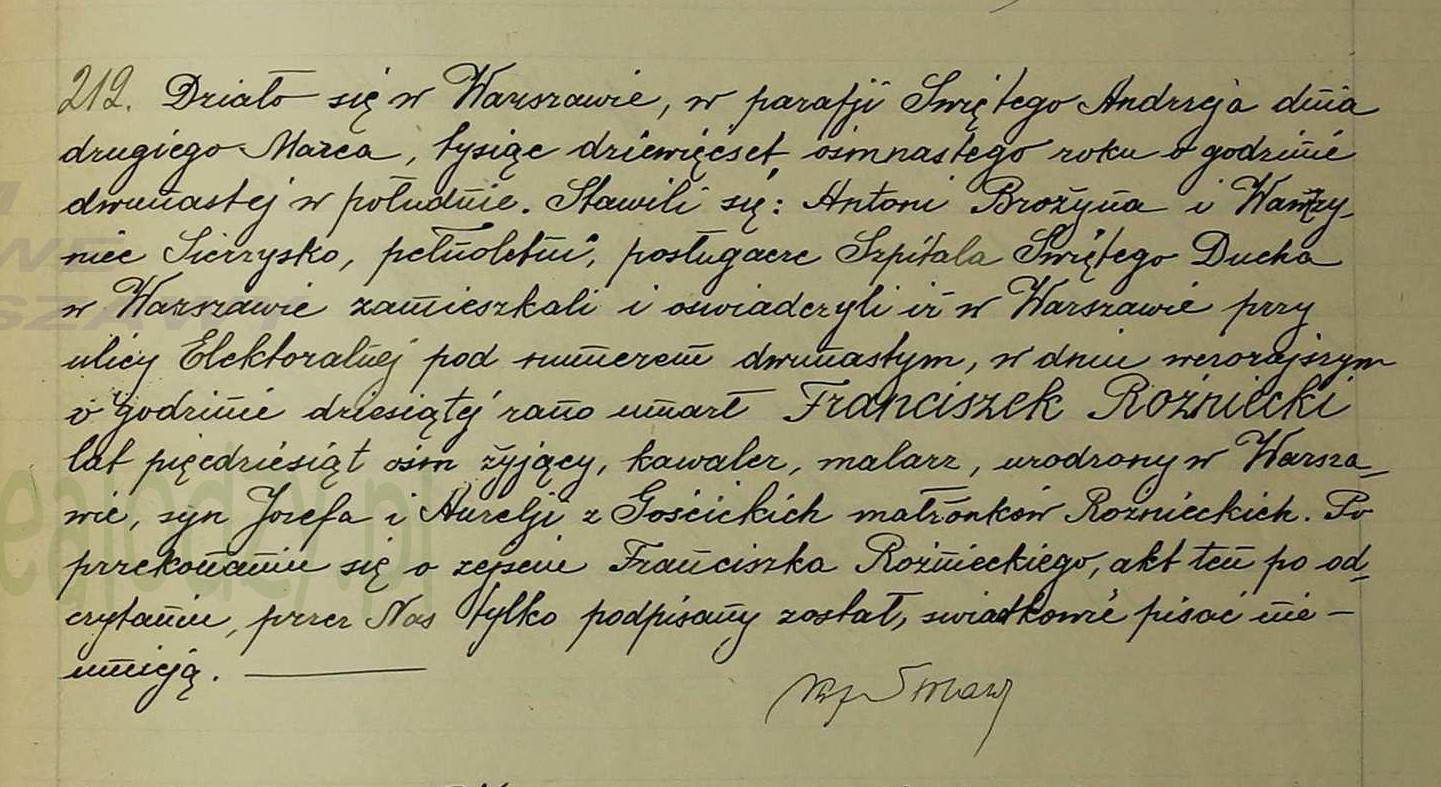 212. Działo się w Warszawie, w parafji Swiętego Andrzeja dnia
drugiego Marca, tysiąc dziewięćset osmnastego roku o godzinie
dwunastej w południe. Stawili się: Antoni Brożyna i Wawrzy-
niec Sierzysko, pełnoletni, posługacze Szpitala Swiętego Ducha
w Warszawie zamieszkali i oswiadczyli iż w Warszawie przy
ulicy Elektoralnej pod numerem dwunastym, w dniu wczorajszym
o godzinie dziesiątej rano umarł Franciszek Rożniecki
lat pięćdziesiąt ośm żyjący, kawaler, malarz, urodzony w Warsza-
wie, syn Józefa i Aurelji z Gościckich małżonków Rożnieckich. Po
przekonaniu się o zejsciu Franciszka Rożnieckiego, akt ten po od-
czytaniu, przez Nas tylko podpisany został, swiadkowie pisać nie -
umieją. —
WE
SZAWY
ealodzy.pl